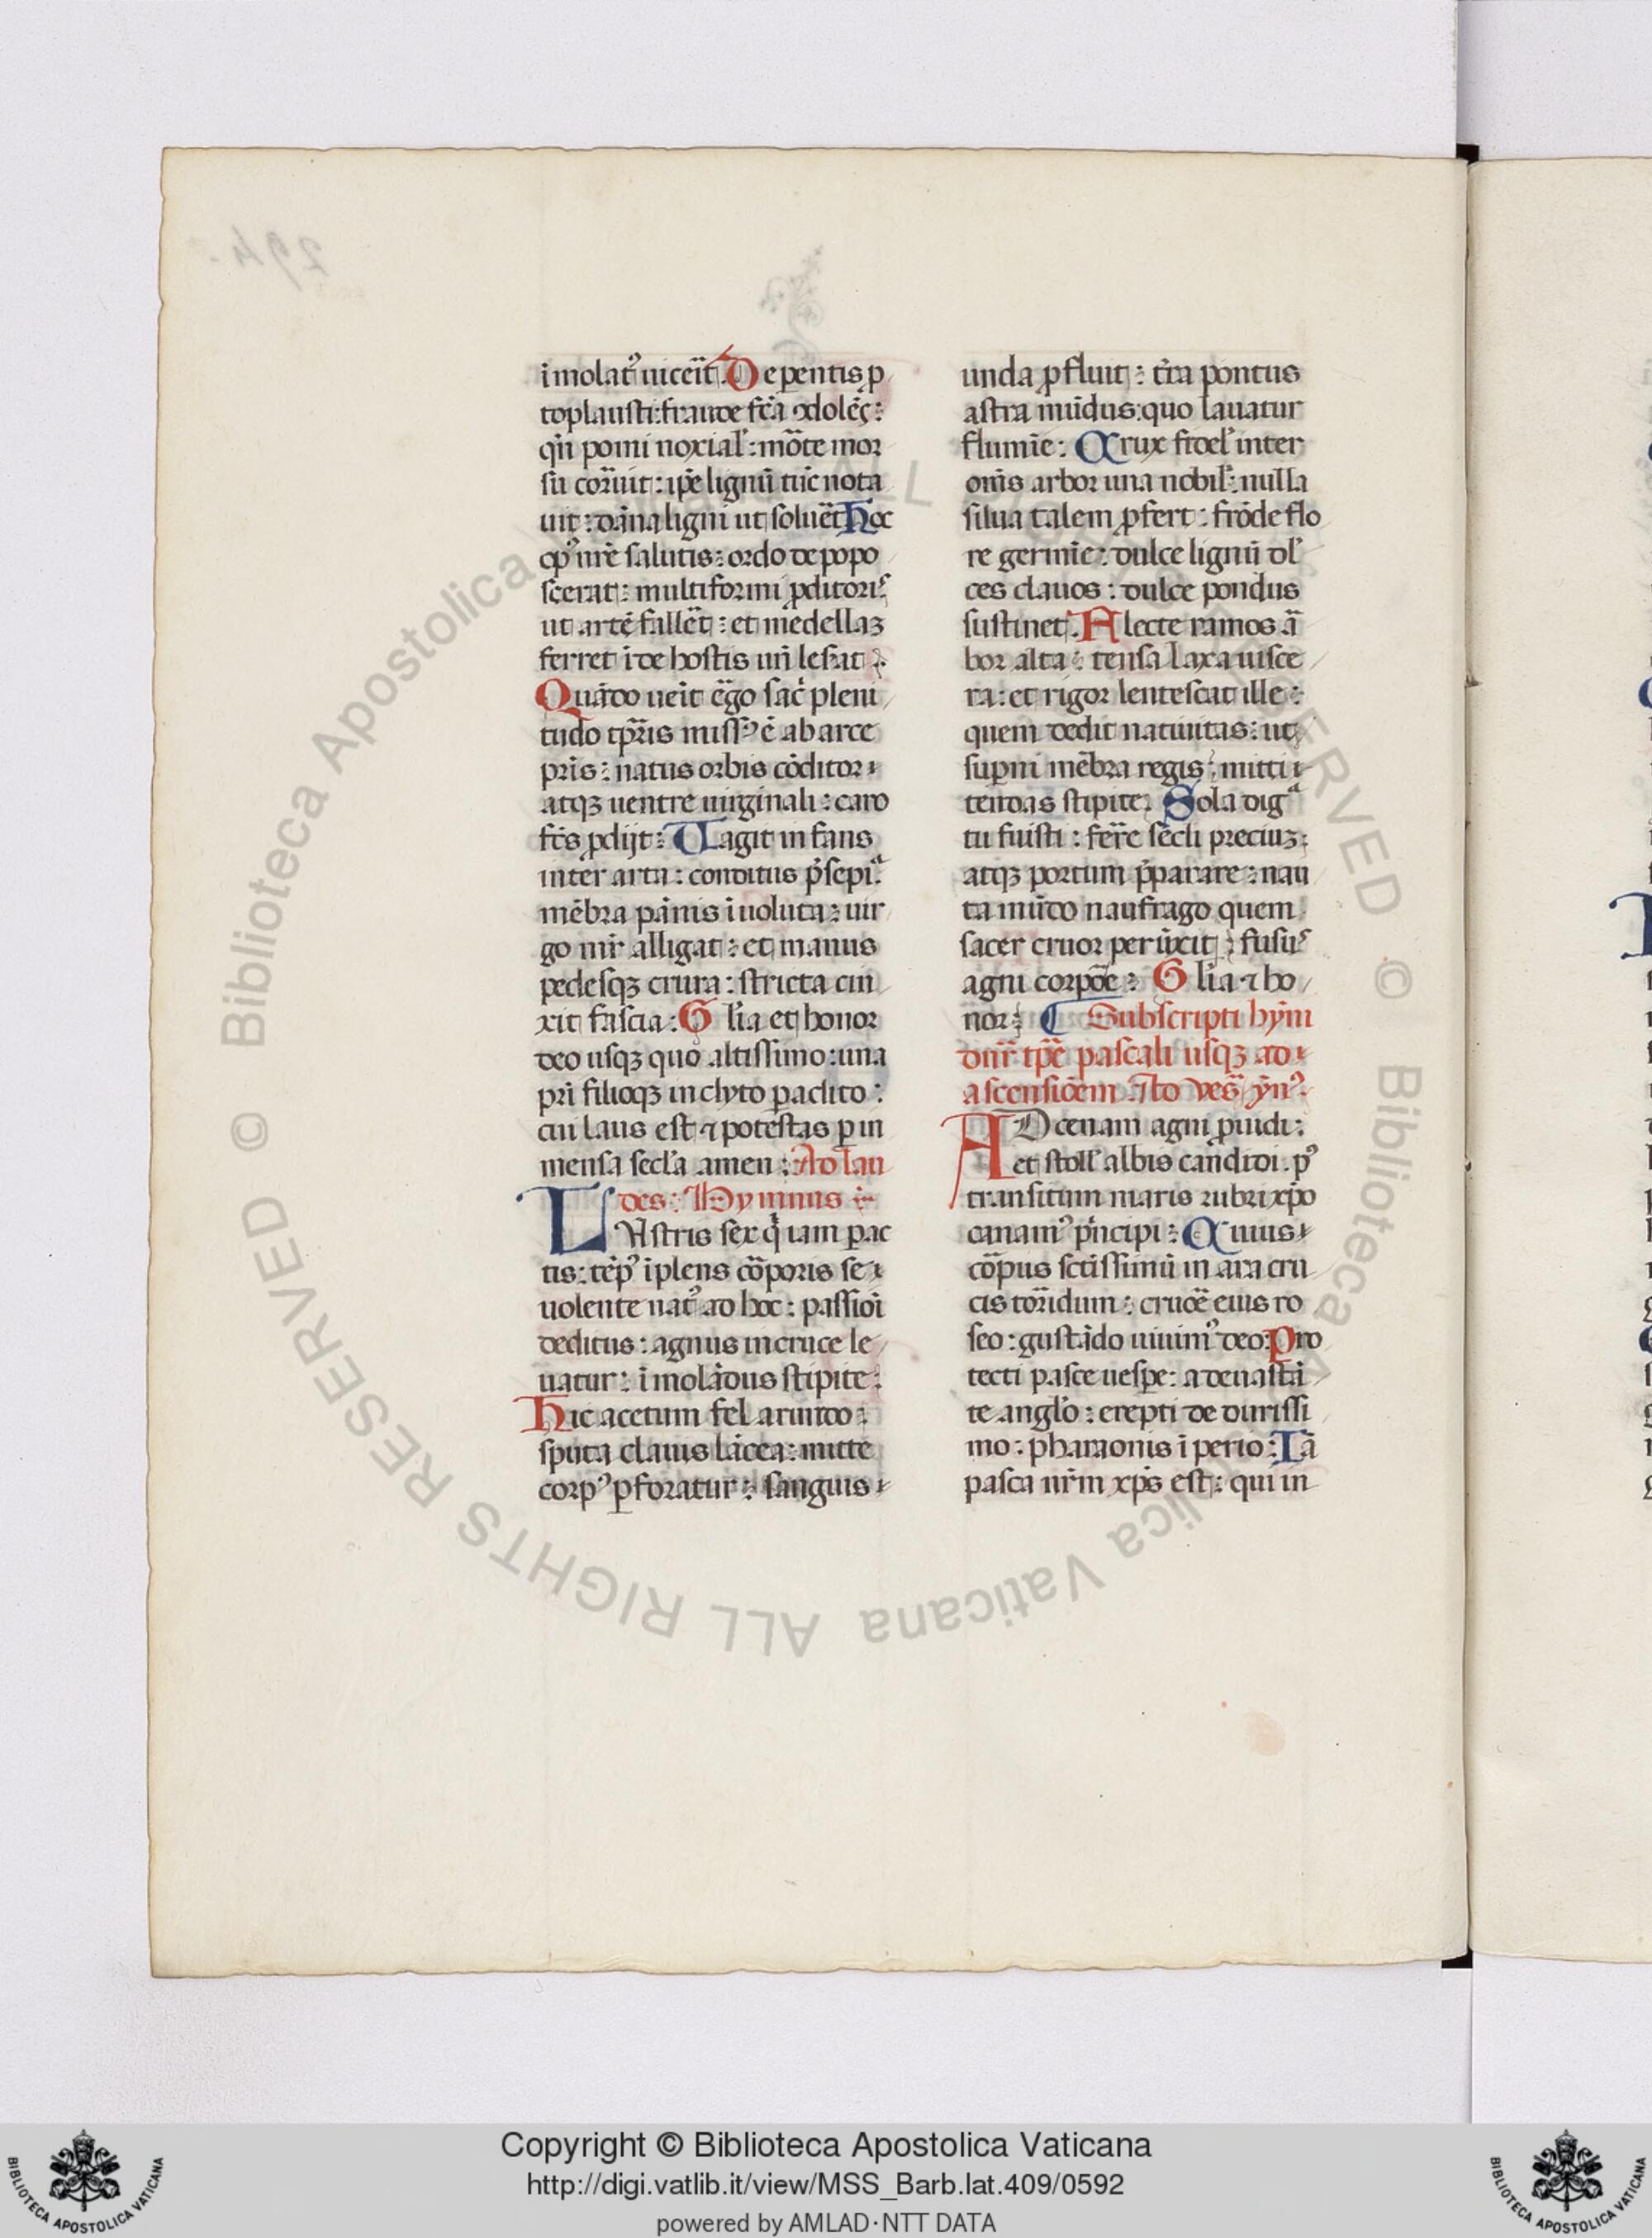 294.
i molat᷒ uicēit. De pentis p
toplausti: fraude fcā ↄdolēs:
qn̄ pomi noxial᷒: mōte mor
su corruit: ip̄e lignū tūc nota
uit: dāna ligni ut soluēt Hoc
op᷒ nr̄e salutis: ordo de popo
scerat: multiformi ꝓditoris
ut artē fallēt: et medellaꝫ
ferret īde hostis un̄ leserat.
Quādo uēit ēgo sac̄ pleni
tudo tp̄ris miss᷒ ē ab arce
pr̄is: natus orbis cōditor
atqꝫ uentre uirginali: caro
fc̄s ꝓdijt: Uagit infans
inter arta: conditus p̄sepia.
mēbra pānis īuoluta: uir
go mr̄ alligat: et manus
pedesqꝫ crura: stricta cin
xit fascia: Gl̄ia et honor
deo usqꝫ quo altissimo: una
pr̄i filioqꝫ inclyto paclito:
cui laus est ⁊ potestas ꝑ in
mensa secl̄a amen: Ad lau
des: Hymnus
LUstris sex q̄ iam ꝑac
tis: tēp᷒ īplens cōporis se
uolente nat᷒ ad hoc: passiōi
deditus: agnus in cruce le
uatur: īmolādus stipite:
Hic acetum fel arundo:
sputa clauis lācea: mitte
corp᷒ ꝑforatur: sanguis
unda ꝓfluit: tr̄ra pontus
astra mūdus: quo lauatur
flumīe: Crux fidel᷒ inter
om̄s arbor una nobil᷒: nulla
silua talem ꝓfert: frōde flo
re germīe: dulce lignū dl᷒
ces clauos: dulce pondus
sustinet. Flecte ramos ā
bor alta: tensa laxa uisce
ra: et rigor lentescat ille:
quem dedit natiuitas: ut
suꝑni mēbra regis: mitti
tendas stipite. Sola digᵃ
tu fuisti: ferr̄e sēcli preciuꝫ:
atqꝫ portum p̄parare: nau
ta mūdo naufrago quem
sacer cruor perūxit: fusus
agni corpōe: Gl̄ia ⁊ ho
nor: Subscripti hȳni
dn̄r tp̄e pascali usqꝫ ad
ascensiōem. Ad ves᷒ yn᷒.
AD cenam agni ꝓuidi:
et stoll᷒ albis candidi. p᷒
transitum maris rubri xp̄o
canam᷒ p̄ncipi: Cuius
cōpus sc̄tissimū in ara cru
cis torridum: cruōe eius ro
seo: gustādo uiuim᷒ deo: Pro
tecti pasce uesꝑe: a deuastā
te angl̄o: erepti de durissi
mo: pharaonis īperio: Iā
pasca nr̄m xp̄s est: qui in
© Biblioteca Apostolica Vaticana ALL RIGHTS RESERVED
Copyright © Biblioteca Apostolica Vaticana
http://digi.vatlib.it/view/MSS_Barb.lat.409/0592
powered by AMLAD·NTT DATA
BIBLIOTECA APOSTOLICA VATICANA
BIBLIOTECA APOSTOLICA VATICANA